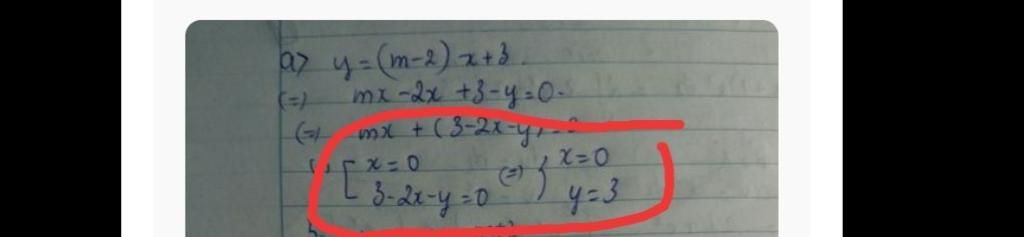 a) y = (m-2) x + 3
(=) mx - 2x + 3 - y = 0.
(=) mx + (3-2x-y) = 0
[ x = 0 (=) } x = 0
3-2x-y = 0 y = 3